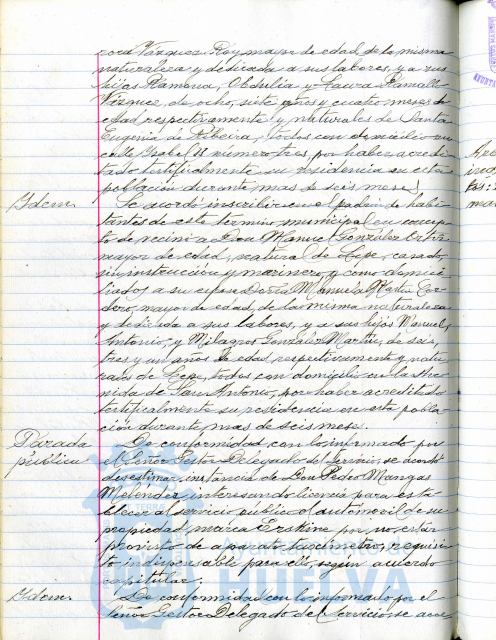 cora Vázquez Rey mayor de edad, de la misma
naturaleza y dedicada a sus labores, y a sus
hijos Ramona, Obdulia y Laura Ramallo
Vázquez, de ocho, siete años y cuatro meses de
edad respectivamente y naturales de Santa
Eugenia de Ribeira, todos con domicilio en
calle Isabel II número tres, por haber acredi-
tado testifical su residencia en esta
población durante mas de seis meses.
Idem. Se acordó inscribir en el padrón de habi-
tantes de este término municipal en concep-
to de vecino a Don Manuel González Ortiz
mayor de edad, natural de Lepe, casado,
sin instrucción y marinero, y como domici-
liados a su esposa Doña Manuela Martín Cor-
dero, mayor de edad, de la misma naturaleza
y dedicada a sus labores, y a sus hijos Manuel,
Antonio, y Milagros González Martín, de seis,
tres y un años de edad respectivamente y natu-
rales de Lepe, todos con domicilio en la Ave-
nida de San Antonio, por haber acreditado
testificalmente su residencia en esta pobla-
ción durante mas de seis meses.
Parada De conformidad con lo informado por
pública el Señor Gestor Delegado de Servicios, se acordó
desestimar instancia de Don Pedro Mangas
Meléndez interesando licencia para esta-
blecer al servicio público el automóvil de su
propiedad marca Erskine por no estar
provisto de aparato taxímetro, requisi-
to indispensable para ello, según acuerdo
capitular.
Idem. De conformidad con lo informado por el
Señor Gestor Delegado de Servicios, se acor
Ayuntamiento de
HUELVA